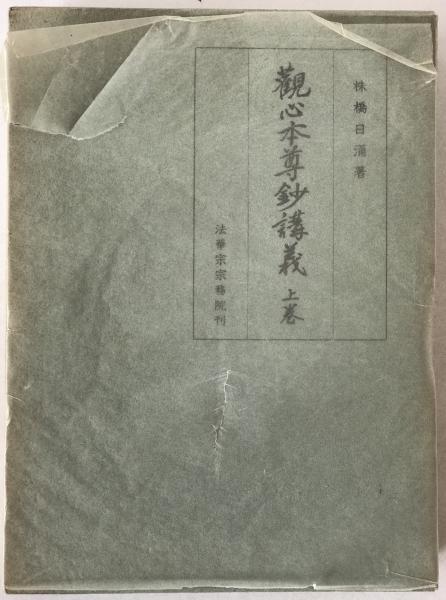 株橋日涌著
觀心本尊鈔講義 上卷
法華宗宗務院刊